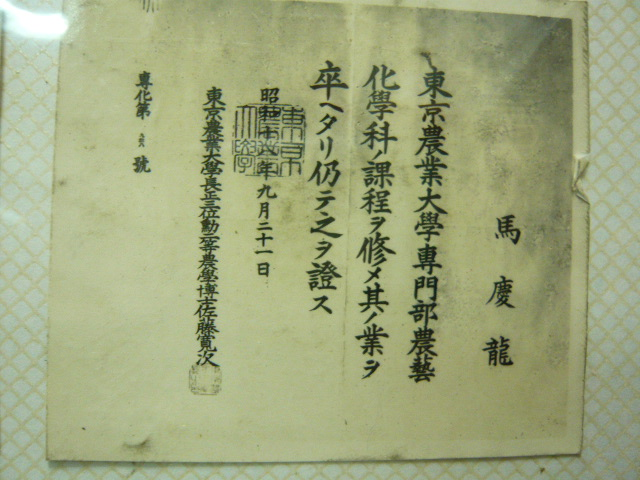 馬慶龍
東京農業大學専門部農藝
化學科ノ課程ヲ修メ其ノ業ヲ
卒ヘタリ仍テ之ヲ證ス
昭和十 年九月二十一日
東京農業大學長正三位勳二等農學博士佐藤寛次
専化第 號
東京農業大學